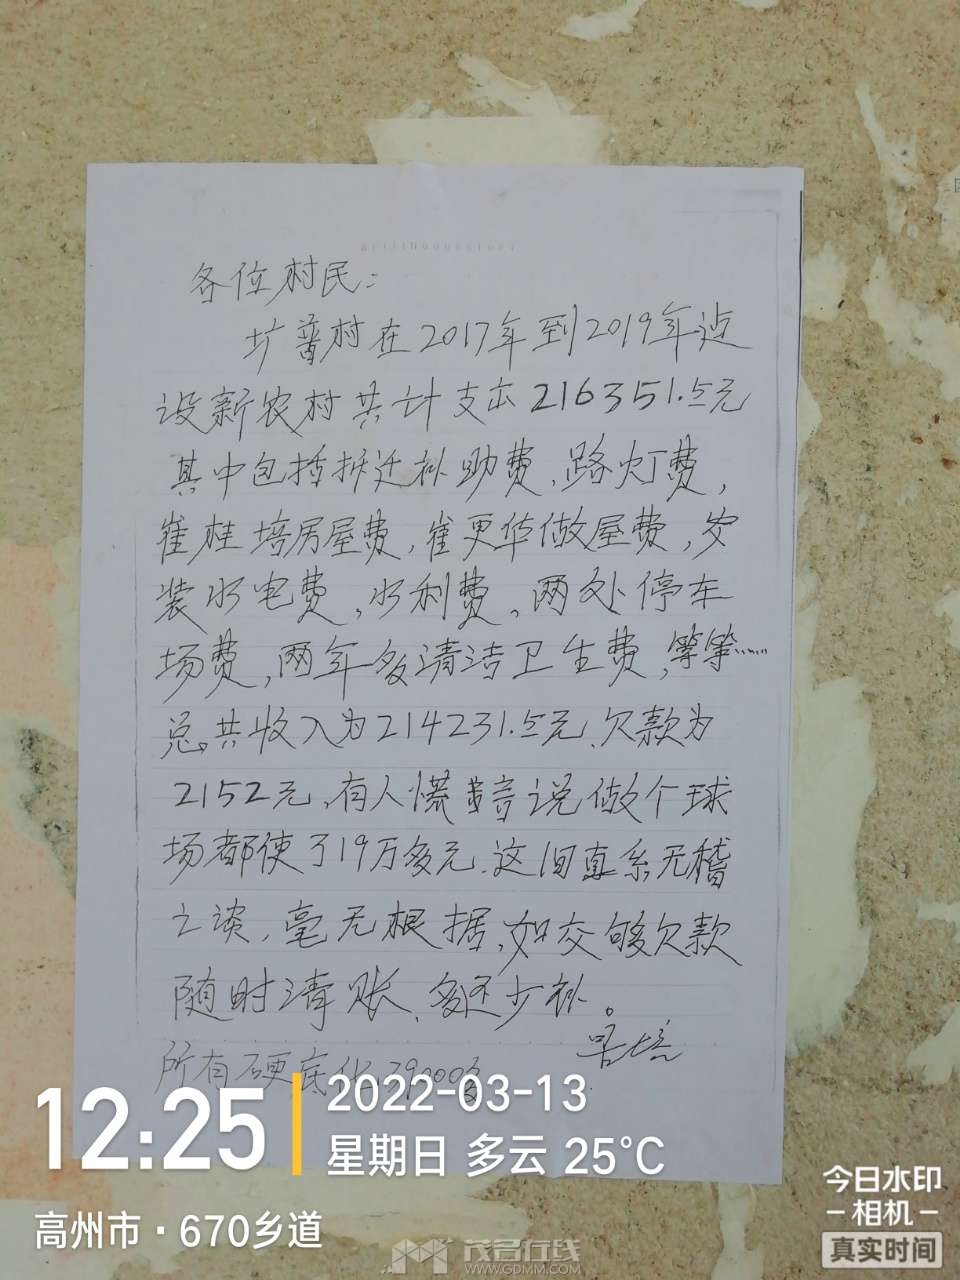 各位村民：
圹蓊村在2017年到2019年述
设新农村共计支出216351.5元
其中包括拆迁补助费、路灯费，
崔桂培房屋费，崔更华做屋费，安
装水电费，水利费，两处停车
场费，两年多清洁卫生费，等等……
总共收入为214231.5元、欠款为
2152元，有人慌说做个球
场都使了19万多元.这旧真系无稽
之谈，毫无根据，如交够欠款
随时清账、多还少补。
培
所有硬底化79000多
12:25
2022-03-13
星期日 多云 25°C
高州市·670乡道
茂名在线
WWW.GDMM.COM
今日水印
-相机-
真实时间